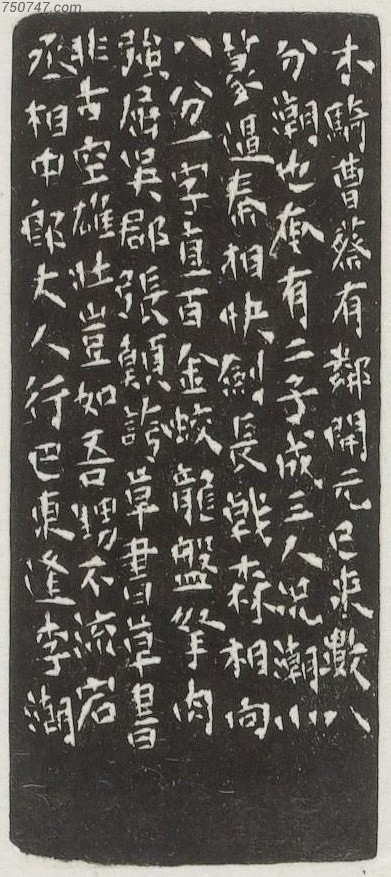 750747.com
木騎曹蔡有鄰開元已來數八
分潮也奄有二子成三人況潮小
篆逼秦相快劍長戟森相向
八分一字直百金蛟龍盤拏肉
強屈吳郡張顛誇草書草書
非古空雄壯豈如吾甥不流宕
丞相中郎丈人行巴東逢李潮